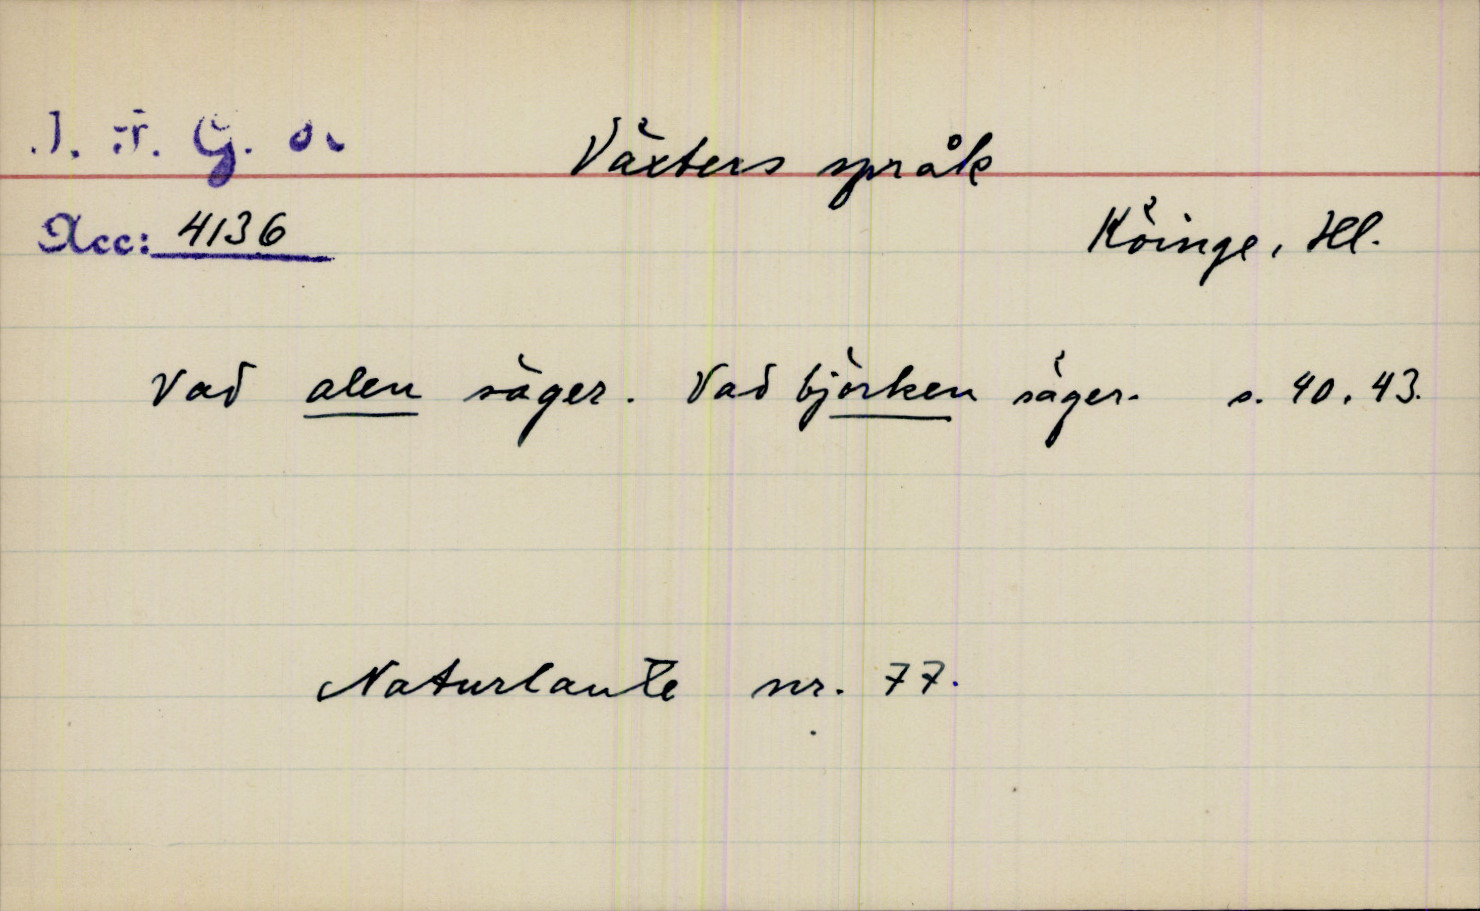 I. F. G. s.
Växters språk
Acc: 4136
Köinge, Hl.
Vad alen säger. Vad björken säger. s. 40, 43.
Naturlaute nr. 77.